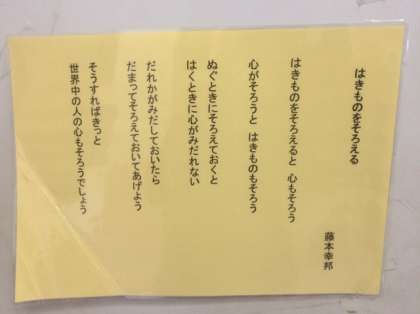 はきものをそろえる
藤本幸邦
はきものをそろえると 心もそろう
心がそろうと はきものもそろう
ぬぐときにそろえておくと
はくときに心がみだれない
だれかがみだしておいたら
だまってそろえておいてあげよう
そうすればきっと
世界中の人の心もそろうでしょう